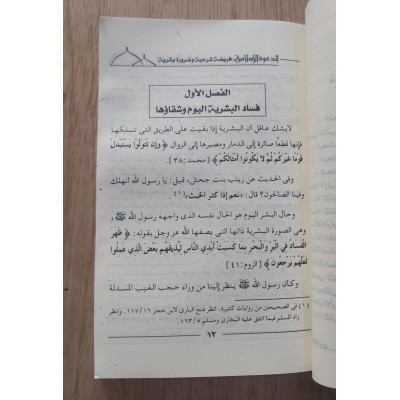 الدعوة الإسلامية فريضة شرعية وضرورة بشرية
الفصل الأول
فساد البشرية اليوم وشقاؤها
لايشك عاقل أن البشرية إذا بقيت على الطريق التى تسلكها
فإنها قطعًا صائرة إلى الدمار ومصيرها إلى الزوال ﴿ وَإِن تَتَوَلَّوْا يَسْتَبْدِلْ
قَوْمًا غَيْرَكُمْ ثُمَّ لا يَكُونُوا أَمْثَالَكُمْ ﴾ [محمد: ٣٨].
وفى الحديث عن زينب بنت جحش، قيل: يا رسول الله أنهلك
وفينا الصالحون؟ قال: «نعم إذا كثر الخبث» (١).
وحال البشر اليوم هو الحال نفسه الذى واجهه رسول الله ﷺ،
وهى الصورة البشرية ذاتها التى يصفها الله عز وجل بقوله: ﴿ ظَهَرَ
الْفَسَادُ فِي الْبَرِّ وَالْبَحْرِ بِمَا كَسَبَتْ أَيْدِي النَّاسِ لِيُذِيقَهُم بَعْضَ الَّذِي عَمِلُوا
لَعَلَّهُمْ يَرْجِعُونَ ﴾ [الروم: ٤١]
وكان رسول الله ﷺ ينظر إلينا من وراء حجب الغيب المسدلة
(١) فى الصحيحين من روايات كثيرة. انظر فتح البارى لابن حجر ١١٧/١٦. وانظر
زاد المسلم فيما اتفق عليه البخارى ومسلم ١٦٣/٥.
١٣